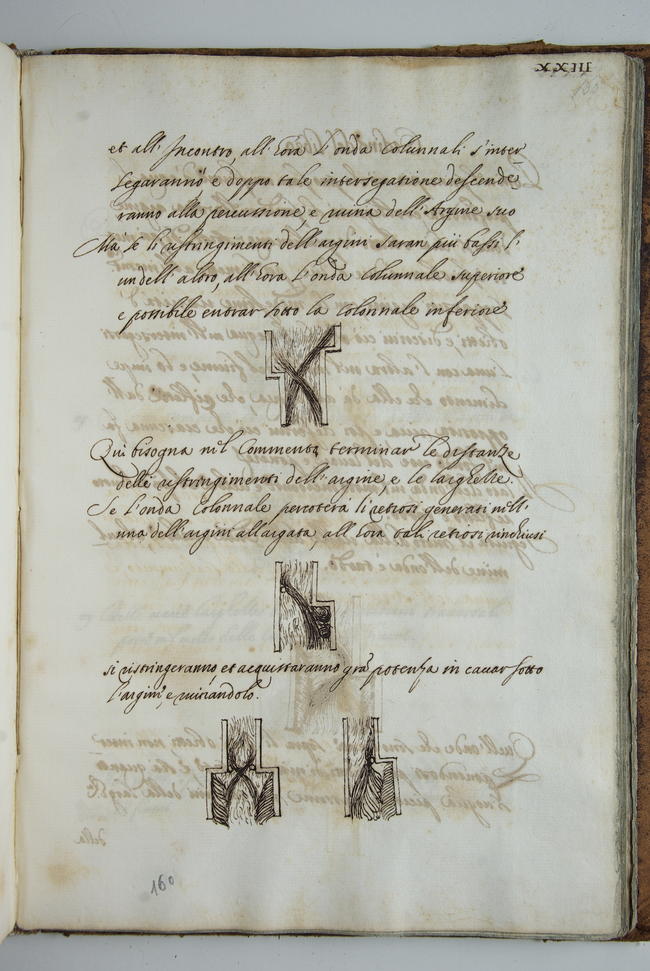 XXIII
et all' Incontro, all' hora l'onda Colunnali s'inter-
segaranno e doppo tale intersegatione descende-
ranno alla percussione, e ruina dell' Argine suo
Ma se li ristringimenti dell' argini saran più bassi l'
un dell' altro, all' hora l'onda Colunnale superiore
e possibile entrar sotto la Colonnale inferiore
Qui bisogna nel Commento terminar le distanze
delli ristringimenti dell' argine, e le larghezze.
Se l'onda Colonnale percoterà li retrosi generati nell'
una dell' argini allargata, all' hora tali retrosi rinchiusi
si ristringeranno, et acquistaranno grā potenza in cavar sotto
l'argini, e ruinandolo.
160